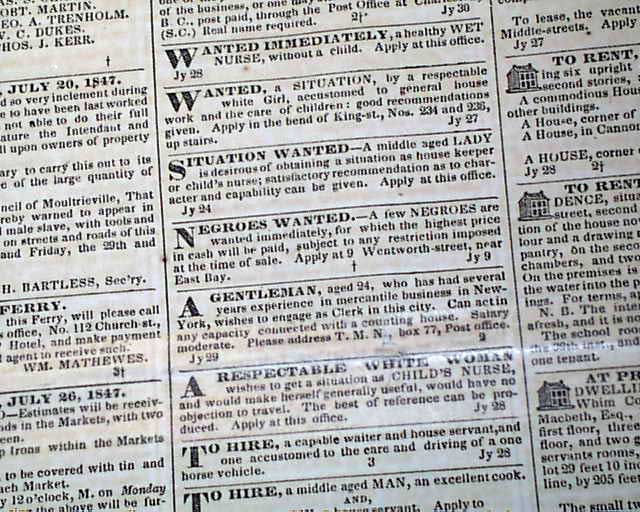 ORT. MARTIN.
EO. A. TRENHOLM.
W. C. DUKES.
HOS. J. KERR.
†
JULY 20, 1847.
d so very inclement during
e to have been last worked
not able to do their full
ature the Intendant and
ll upon owners of property
ary to carry this out to its
e of the large quantity of
ncil of Moultrieville, That
reby warned to appear in
l male slave, with tools and
on streets and roads of this
and Friday, the 29th and
H. BARTLESS, Sec'ry.
FERRY.
mes Ferry, will please call
s office, No. 112 Church-st.,
Hotel, and make payment
l agent to receive such.
WM. MATHEWES.
3†
JULY 26, 1847.
O—Estimates will be receiv-
ds in the Markets, with two
een.
p Irons within the Markets
to be covered with tin and
ach Market.
y 12 o'clock, M. on Monday
the above will be fur-
of the business, or one may
B. C., post paid, through the Post Office at Charles
(S.C.) Real name required. 2† Jy 30
WANTED IMMEDIATELY, a healthy WET
NURSE, without a child. Apply at this office.
Jy 28
WANTED, a SITUATION, by a respectable
white Girl, accustomed to general house
work and the care of children: good recommendations
given. Apply in the bend of King-st., Nos. 234 and 236,
up stairs. Jy 27
SITUATION WANTED—A middle aged LADY
is desirous of obtaining a situation as house keeper
or child's nurse; satisfactory recommendation as to char-
acter and capability can be given. Apply at this office.
Jy 24
NEGROES WANTED.—A few NEGROES are
wanted immediately, for which the highest price
in cash will be paid, subject to any restriction imposed
at the time of sale. Apply at 9 Wentworth-street, near
East Bay. † Jy 9
A GENTLEMAN, aged 24, who has had several
years experience in mercantile business in New-
York, wishes to engage as Clerk in this city. Can act in
any capacity connected with a counting house. Salary
moderate. Please address T. M. N., box 77, Post office.
Jy 29 2
A RESPECTABLE WHITE WOMAN
wishes to get a situation as CHILD'S NURSE,
and would make herself generally useful, would have no
objection to travel. The best of reference can be pro-
duced. Apply at this office. Jy 28
TO HIRE, a capable waiter and house servant, and
one accustomed to the care and driving of a one
horse vehicle. 3 Jy 28
TO HIRE, a middle aged MAN, an excellent cook.
AND,
house servant. Apply to
To lease, the vacan
Middle-streets. Apply
Jy 27
TO RENT,
ing six upright
second stories,
A commodious Hou
other buildings.
A House, corner of
A House, in Canno
A HOUSE, corner
Jy 28 2†
TO RENT
DENCE, situa
street, second
tion of the house
lour and a drawing
pantry, on the seco
chambers, and two
On the premises is
the water into the
ings. For terms,
N. B. The inter
afresh, and is no
The school room
the 30th inst., and
one tenant.
AT PR
DWELLI
Whim Co
Macbeth, Esq.,
first floor, three
floor, and two
servants rooms,
lot 29 feet 10 in
line, by 205 fee
The small tw